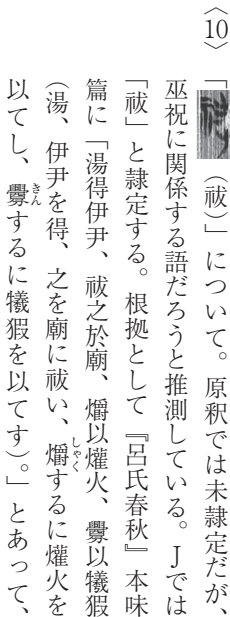 〈10〉「（祓）」について。原釈では未隷定だが、
巫祝に関係する語だろうと推測している。Jでは
「祓」と隷定する。根拠として『呂氏春秋』本味
篇に「湯得伊尹、祓之於廟、爝以爟火、釁以犧猳
（湯、伊尹を得、之を廟に祓い、爝しゃくするに爟火を
以てし、釁きんするに犧猳を以てす）。」とあって、